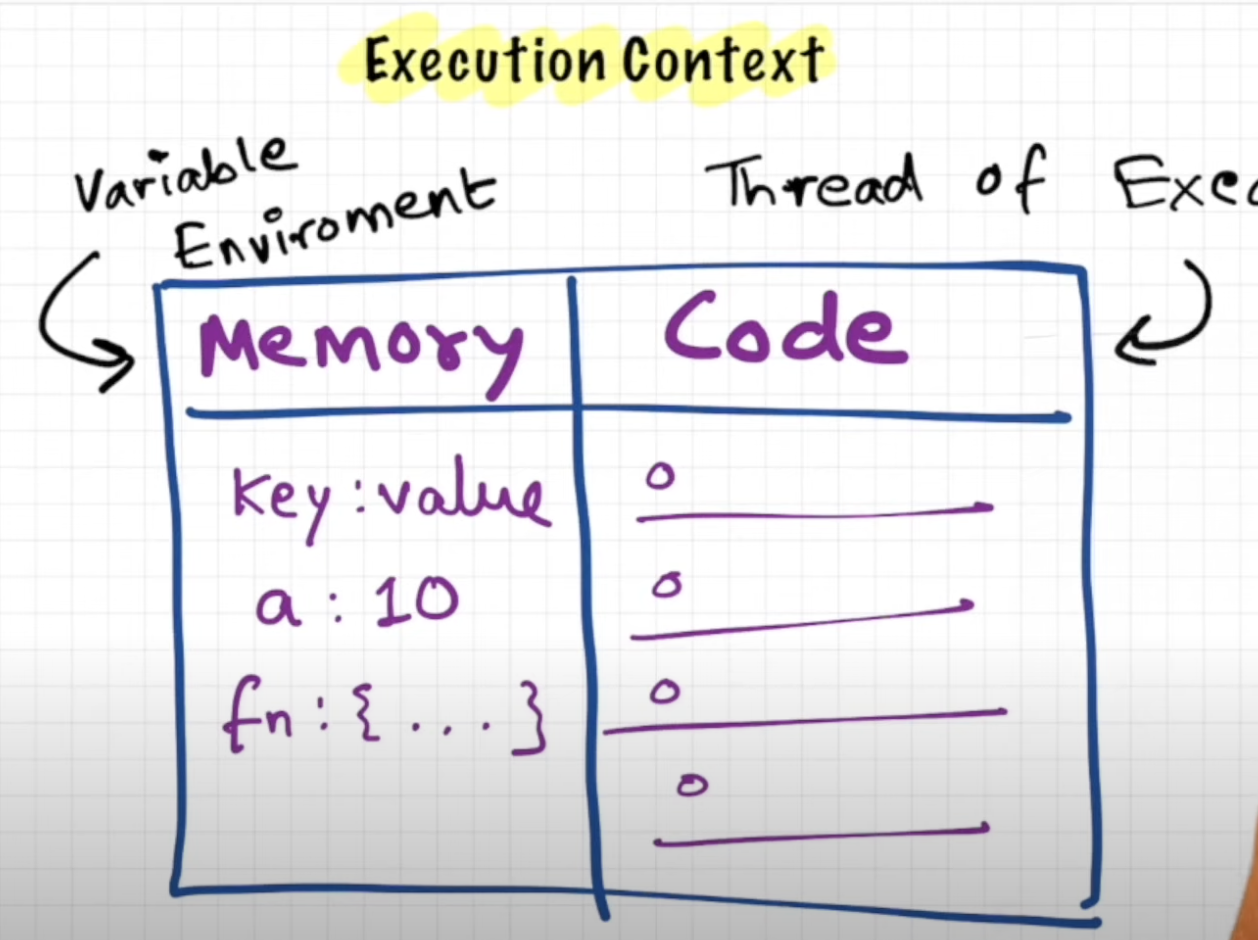 Execution Context
Variable
Enviroment
Thread of Exec
Memory
Code
key : value
a : 10
fn : { . . . }